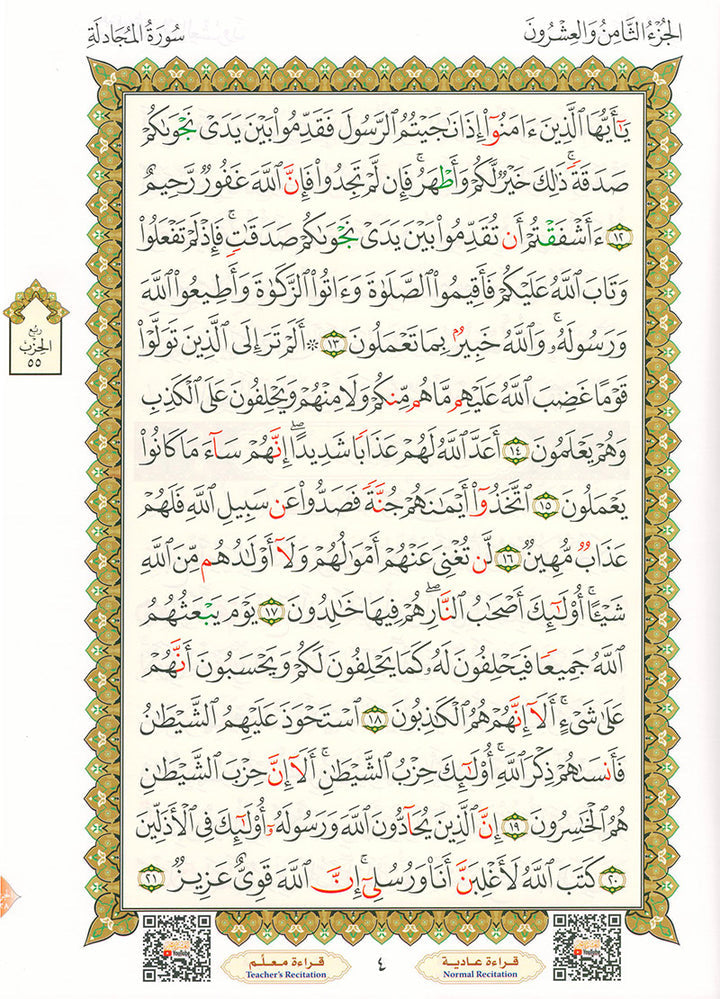 الجُزْءُ الثَّامِنُ وَالعِشْرُونَ
سُورَةُ المُجَادلَةِ
يَٰٓأَيُّهَا ٱلَّذِينَ ءَامَنُوٓا۟ إِذَا نَٰجَيْتُمُ ٱلرَّسُولَ فَقَدِّمُوا۟ بَيْنَ يَدَىْ نَجْوَىٰكُمْ
صَدَقَةً ۚ ذَٰلِكَ خَيْرٌ لَّكُمْ وَأَطْهَرُ ۚ فَإِن لَّمْ تَجِدُوا۟ فَإِنَّ ٱللَّهَ غَفُورٌ رَّحِيمٌ
١٢ ءَأَشْفَقْتُمْ أَن تُقَدِّمُوا۟ بَيْنَ يَدَىْ نَجْوَىٰكُمْ صَدَقَٰتٍ ۚ فَإِذْ لَمْ تَفْعَلُوا۟
وَتَابَ ٱللَّهُ عَلَيْكُمْ فَأَقِيمُوا۟ ٱلصَّلَوٰةَ وَءَاتُوا۟ ٱلزَّكَوٰةَ وَأَطِيعُوا۟ ٱللَّهَ
وَرَسُولَهُۥ ۚ وَٱللَّهُ خَبِيرٌۢ بِمَا تَعْمَلُونَ ١٣ ۞ أَلَمْ تَرَ إِلَى ٱلَّذِينَ تَوَلَّوْا۟
قَوْمًا غَضِبَ ٱللَّهُ عَلَيْهِم مَّا هُم مِّنكُمْ وَلَا مِنْهُمْ وَيَحْلِفُونَ عَلَى ٱلْكَذِبِ
وَهُمْ يَعْلَمُونَ ١٤ أَعَدَّ ٱللَّهُ لَهُمْ عَذَابًا شَدِيدًا ۖ إِنَّهُمْ سَآءَ مَا كَانُوا۟
يَعْمَلُونَ ١٥ ٱتَّخَذُوٓا۟ أَيْمَٰنَهُمْ جُنَّةً فَصَدُّوا۟ عَن سَبِيلِ ٱللَّهِ فَلَهُمْ
عَذَابٌ مُّهِينٌ ١٦ لَّن تُغْنِىَ عَنْهُمْ أَمْوَٰلُهُمْ وَلَآ أَوْلَٰدُهُم مِّنَ ٱللَّهِ
شَيْـًٔا ۚ أُو۟لَٰٓئِكَ أَصْحَٰبُ ٱلنَّارِ ۖ هُمْ فِيهَا خَٰلِدُونَ ١٧ يَوْمَ يَبْعَثُهُمُ
ٱللَّهُ جَمِيعًا فَيَحْلِفُونَ لَهُۥ كَمَا يَحْلِفُونَ لَكُمْ وَيَحْسَبُونَ أَنَّهُمْ
عَلَىٰ شَىْءٍ ۚ أَلَآ إِنَّهُمْ هُمُ ٱلْكَٰذِبُونَ ١٨ ٱسْتَحْوَذَ عَلَيْهِمُ ٱلشَّيْطَٰنُ
فَأَنسَىٰهُمْ ذِكْرَ ٱللَّهِ ۚ أُو۟لَٰٓئِكَ حِزْبُ ٱلشَّيْطَٰنِ ۚ أَلَآ إِنَّ حِزْبَ ٱلشَّيْطَٰنِ
هُمُ ٱلْخَٰسِرُونَ ١٩ إِنَّ ٱلَّذِينَ يُحَآدُّونَ ٱللَّهَ وَرَسُولَهُۥٓ أُو۟لَٰٓئِكَ فِى ٱلْأَذَلِّينَ
٢٠ كَتَبَ ٱللَّهُ لَأَغْلِبَنَّ أَنَا۠ وَرُسُلِىٓ ۚ إِنَّ ٱللَّهَ قَوِىٌّ عَزِيزٌ ٢١
ربع
الحِزْب
٥٥
YouTube
قراءة عادية
Normal Recitation
٤
قراءة معلّم
Teacher's Recitation
YouTube